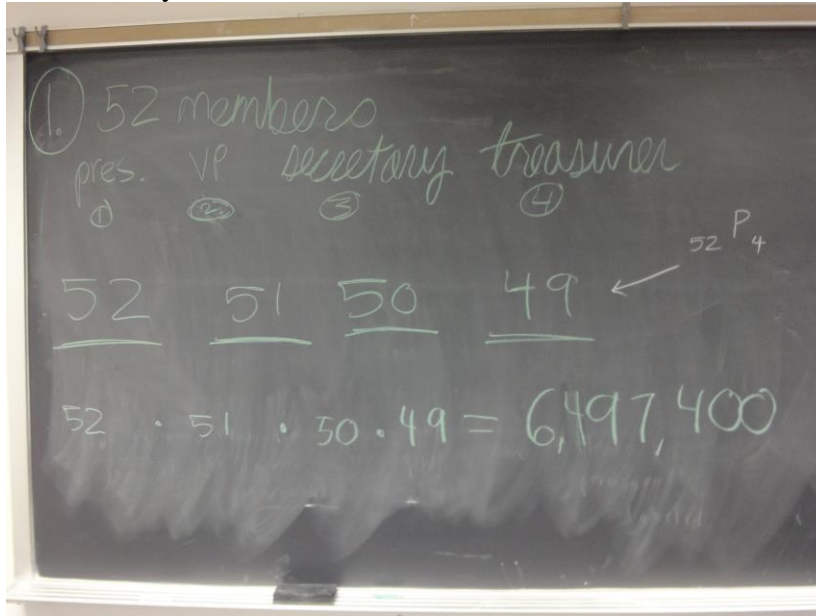 1. 52 members
pres. VP secretary treasurer
① ② ③ ④
52 51 50 49 ← ₅₂P₄
52 · 51 · 50 · 49 = 6,497,400